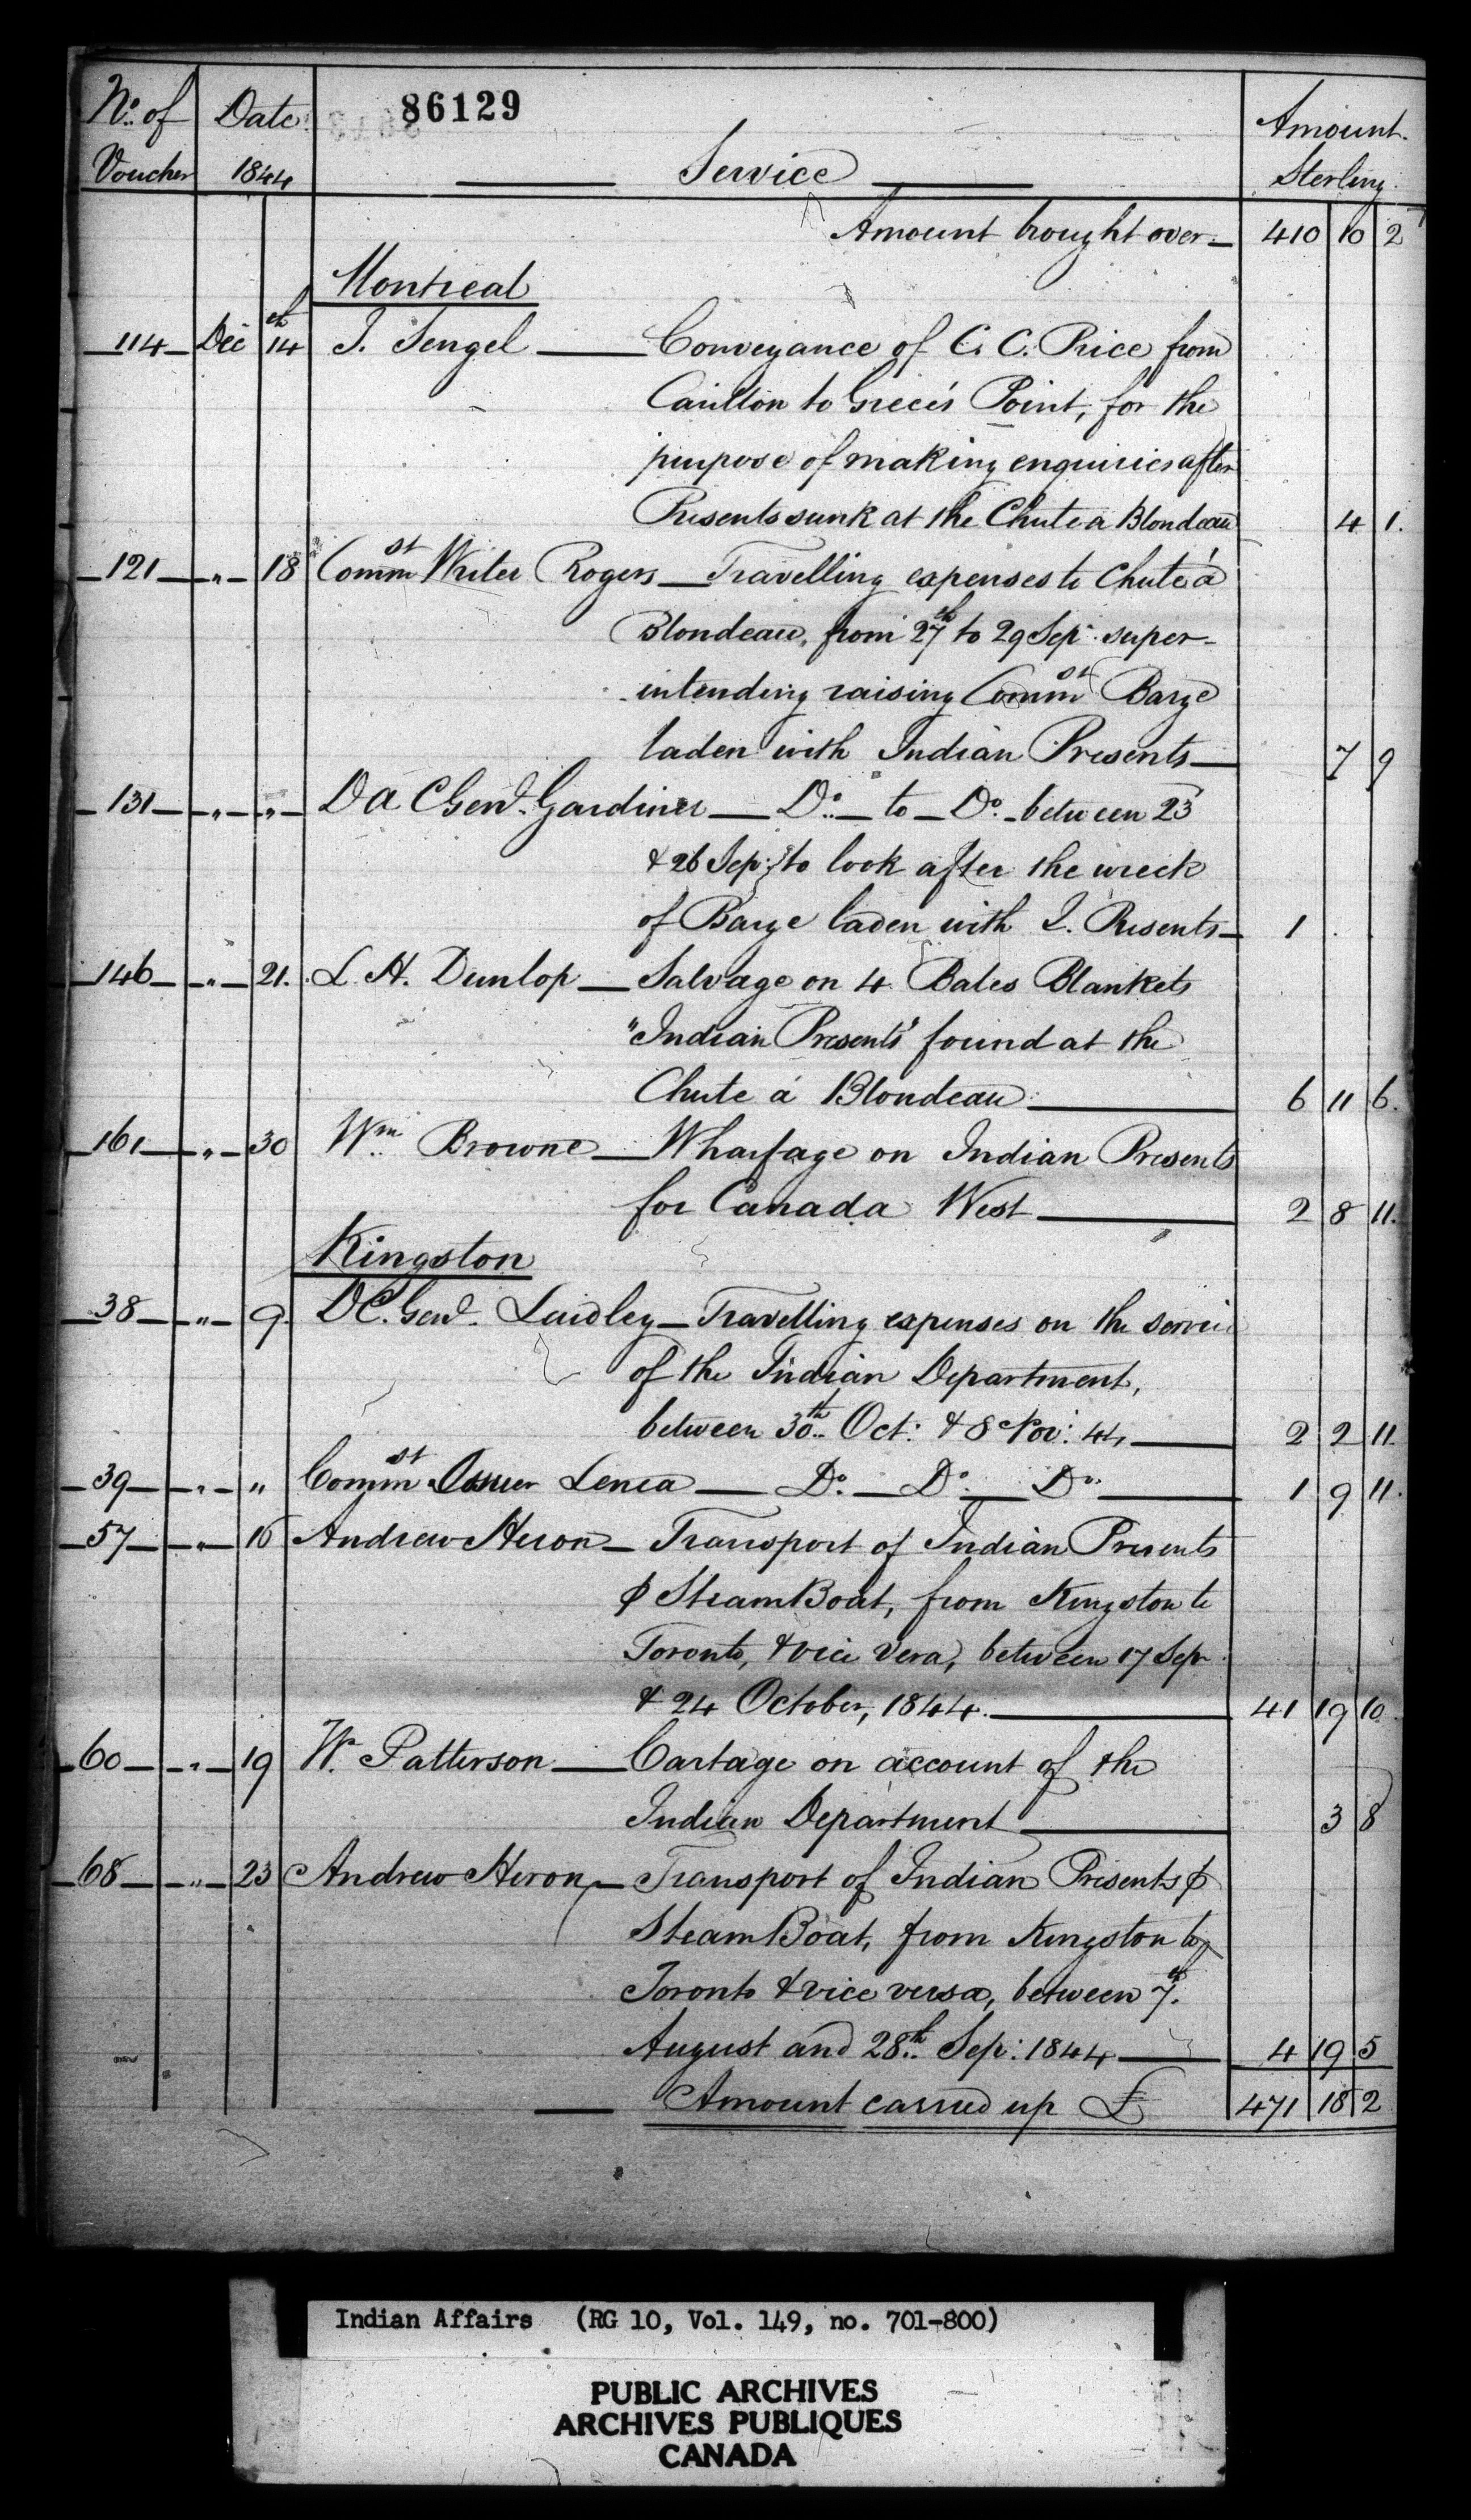 86129
No. of Voucher Date 1844 Service Amount Sterling
Amount brought over 410 10 2
Montreal
114 Dec 14th J. Sengel Conveyance of C. C. Price from
Carillon to Greece's Point, for the
purpose of making enquiries after
Presents sunk at the Chute a Blondeau 4 1.
121 " 18 Commst Writer Rogers Travelling expenses to Chute á
Blondeau, from 27th to 29 Sep. super-
intending raising Commst Barge
laden with Indian Presents 7 9
131 " " D A C Genl. Gardiner Do. to Do. between 23
& 26 Sep: to look after the wreck
of Barge laden with I. Presents 1
146 " 21. L. H. Dunlop Salvage on 4 Bales Blankets
"Indian Presents" found at the
Chute á Blondeau 6 11 6.
161 " 30 Wm. Browne Wharfage on Indian Presents
for Canada West 2 8 11.
Kingston
38 " 9. D C. Genl. Laidley Travelling expenses on the servic
of the Indian Department,
between 30th Oct: & 8 Nov: 44, 2 2 11.
39 " " Commst Issuer Do. Do. Do. 1 9 11.
57 " 16 Andrew Heron Transport of Indian Presents
⅌ Steam Boat, from Kingston to
Toronto, & vice vera, between 17 Sep.
& 24 October, 1844. 41 19 10.
60 " 19 W. Patterson Cartage on account of the
Indian Department 3 8
68 " 23 Andrew Heron Transport of Indian Presents ⅌
Steam Boat, from Kingston to
Toronto & vice versa, between 7th.
August and 28th. Sep: 1844 4 19 5
Amount carried up £ 471 18 2
Indian Affairs (RG 10, Vol. 149, no. 701-800)
PUBLIC ARCHIVES
ARCHIVES PUBLIQUES
CANADA